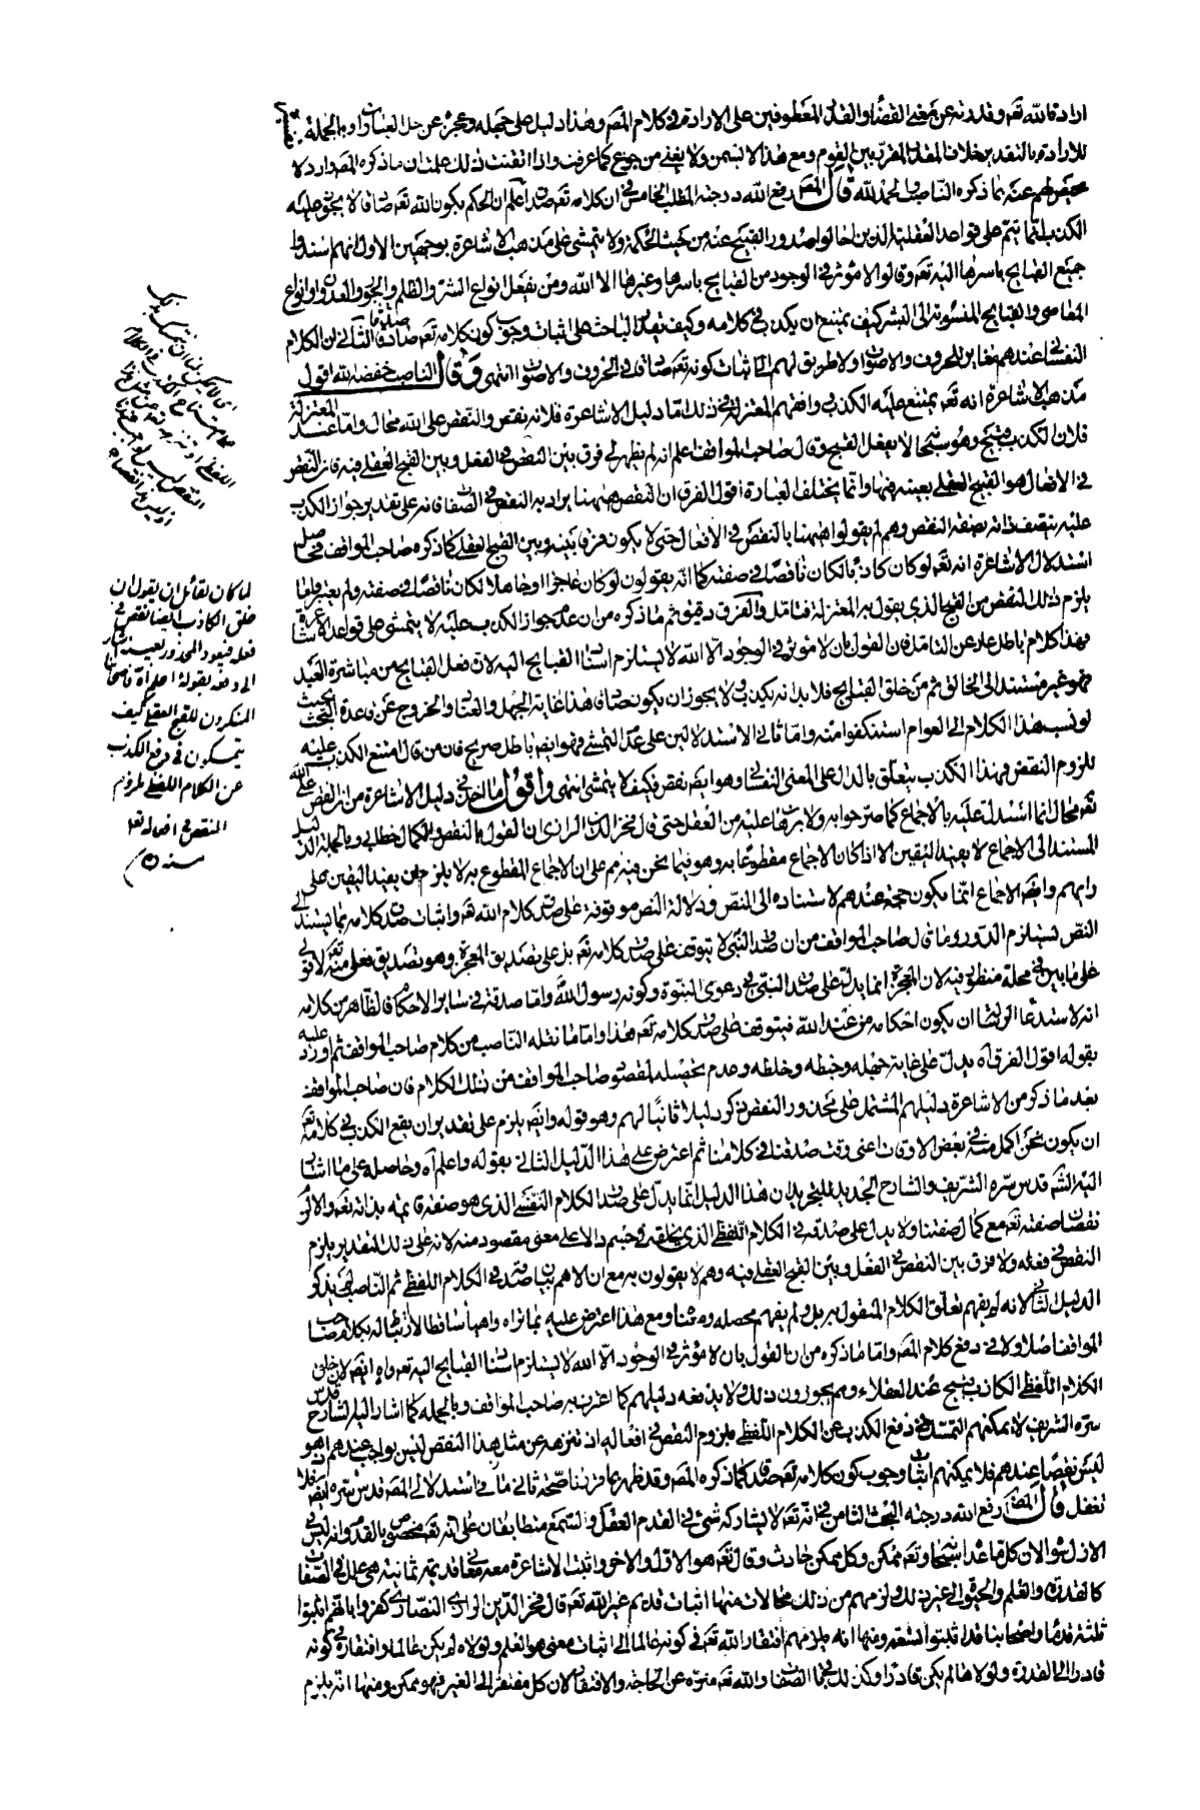 ارادة الله تعه وقدرته عن معنى القضاء والقدر المعطوفين على الارادة في كلام المصه وهذا دليل على جهله وعجزه عن حل العبارات او بالجملة
للارادة بالتقدير خلاف المقدر المقرر بين القوم ومع هذا لا يسمن ولا يغني من جوع كما عرفت واذا اتقنت ذلك علمت ان ما ذكره المصه وارد لا
محيص لهم عنه بما ذكره الناصب والحمد لله قال المصه رفع الله درجته المطلب الخامس في ان كلامه تعه صدق اعلم ان الحكم بكون الله تعه صادقا لا يجوز عليه
الكذب انما يتم على قواعد العدلية الذين احالوا صدور القبيح عنه من حيث الحكمة ولا يتمشى على مذهب الاشاعرة بوجهين الاول انهم اسندوا
جميع القبايح باسرها اليه تعه وقالوا لا مؤثر في الوجود من القبايح باسرها وغيرها الا الله ومن يفعل انواع الشرو الظلم والجور والعدوان وانواع
المعاصي والقبايح المنسوبة الى البشر كيف يمتنع ان يكذب في كلامه وكيف يقدر الباحث على اثبات وجوب كون كلامه تعه صادقا الثاني ان الكلام
النفساني عندهم مغاير للحروف والاصوات ولا طريق لهم الى اثبات كونه تعه صادقا في الحروف والاصوات انتهى وقال الناصب خفضه الله اقول
مذهب الاشاعرة انه تعه يمتنع عليه الكذب ووافقهم المعتزلة في ذلك اما دليل الاشاعرة فلانه نقص والنقص على الله محال واما عند المعتزلة
فلان الكذب قبيح وهو سبحانه لا يفعل القبيح وقال صاحب المواقف اعلم انه لم يظهر لي فرق بين النقص في الفعل وبين القبح العقلي فيه فان النقص
في الافعال هو القبح العقلي بعينه فيها وانما يختلف العبارة اقول الفرق ان النقص ههنا يراد به النقص في الصفات فانه على تقدير جواز الكذب
عليه يتصف ذاته بصفة النقص وهم لم يقولوا ههنا بالنقص في الافعال حتى لا يكون فرق بينه وبين القبح العقلي كما ذكره صاحب المواقف فحاصل
استدلال الاشاعرة انه تعه لو كان كاذبا لكان ناقصا في صفته كما انهم يقولون لو كان عاجزا او جاهلا لكان ناقصا في صفته ولم يعتبروا ما
يلزم ذلك النقص من القبح الذي يقول به المعتزلة فتامل والفرق دقيق ثم ما ذكره من ان عدم جواز الكذب عليه لا يتمشى على قواعد الاشاعرة
فهذا كلام باطل عار عن التامل فان القول بان لا مؤثر في الوجود الا الله لا يستلزم اسناد القبايح اليه لان فعل القبايح من مباشرة العبد
فهو غير مستند الى الخالق ثم من خلق القبايح فلا بد انه يكذب ولا يجوز ان يكون صادقا هذا غاية الجهل والعناد والخروج عن قاعدة البحث بحيث
لو نسب هذا الكلام الى العوام استنكفوا منه واما ثاني الاستدلالين على عدم التمشي فهو ايضا باطل صريح فان من قال امتنع الكذب عليه
للزوم النقص فهذا الكذب يتعلق بالدال على المعنى النفساني وهو ايضه نقص فكيف لا يتمشى انتهى واقول ما اخذ في دليل الاشاعرة من ان النقص على الله
تعه محال انما استدل عليه بالاجماع كما صرحوا به ولا برهان عليه من العقل حتى قال فخر الدين الرازي ان القول بالنقص والكمال خطابي وبالجملة الدليل
المستند الى الاجماع لا يفيد اليقين الا اذا كان الاجماع مقطوعا به وهو فيما نحن فيه مم على ان الاجماع المقطوع به لا يلزم ان يفيد اليقين على
رايهم وايضه الاجماع انما يكون حجة عندهم لاستناده الى النص ودلالة النص موقوفة على صدق كلام الله تعه واثبات صدق كلامه بما يستند الى
النص يستلزم الدور وما قال صاحب المواقف من ان صدق النبي لا يتوقف على صدق كلامه تعه بل على تصديق المعجزة وهو تصديق فعلي منه تعه لا قولي
على ما بين في محله منظور فيه لان المعجزة انما يدل على صدق النبي في دعوى النبوة وكونه رسول الله واما صدقه في ساير الاحكام فالظاهر من كلامه
انه لاستدعاء الرسالة ان يكون احكامه من عند الله فيتوقف على صدق كلامه تعه هذا واما ما نقله الناصب من كلام صاحب المواقف ثم اورد عليه
بقوله اقول الفرق آه يدل على غاية جهله وخبطه وخلطه وعدم تحصيله لمقصود صاحب المواقف من تلك الكلام فان صاحب المواقف
بعد ما ذكر من الاشاعرة دليلهم المشتمل على محذور النقص ذكر دليلا ثانيا لهم وهو قوله وايضه يلزم على تقدير ان يقع الكذب في كلامه تعه
ان يكون نحن اكمل منه في بعض الاوقات اعني وقت صدقنا في كلامنا ثم اعترض على هذا الدليل الثاني بقوله واعلم آه وحاصله على ما اشار
اليه السيد قدس سره الشريف والشارح الجديد للتجريد ان هذا الدليل انما يدل على صدق الكلام النفسي الذي هو صفة قائمة بذاته تعه والا لزم
نقصان صفته تعه مع كمال صفتنا ولا يدل على صدقه في الكلام اللفظي الذي يخلقه في جسم دالا على معنى مقصود منه لانه على ذلك التقدير يلزم
النقص في فعله ولا فرق بين النقص في الفعل وبين القبح العقلي فيه وهم لا يقولون به مع ان الاهم بيان صدقه في الكلام اللفظي ثم الناصب لم يذكر
الدليل الثاني لانه لم يفهم تعلق الكلام المنقول به بل ولم يفهم محصله ومع هذا اعترض عليه بما تراه واهيا ساقطا لا ارتباط له بكلام صاحب
المواقف اصلا ولا في دفع كلام المصه واما ما ذكره من ان القول بان لا مؤثر في الوجود الا الله لا يستلزم اسناد القبايح اليه تعه واه ايضه لان خلق
الكلام اللفظي الكاذب قبيح عند العقلاء وهم يجوزون ذلك ولا يدفعه دليلهم كما اعترف به صاحب المواقف وبالجمله كما اشار اليه الشارح قدس
سره الشريف لا يمكنهم التمسك في دفع الكذب عن الكلام اللفظي بلزوم النقص في افعاله اذ تنزهه عن مثل هذا النقص ليس بواجب عندهم اذ هو
ليس نقصا عندهم فلا يمكنهم اثبات وجوب كون كلامه تعه صدقا كما ذكره المصه وقد ظهر عما قررنا صحة ثاني ما في استدلالي المصه قدس سره ايضه فلا
تغفل قال المصه رفع الله درجته البحث الثامن في انه تعه لا يشاركه شئ في القدم العقل والسمع متطابقان على انه تعه مخصوص بالقدم وانه ليس في
الازل سواه لان كل ما عداه سبحانه وتعه ممكن وكل ممكن حادث وقال تعه هو الاول والاخر واثبت الاشاعرة معه معاني قديمة ثمانية هي علل في الصفات
كالقدرة والعلم والحيوة الى غير ذلك ولزمهم من ذلك محالات منها اثبات قديم غير الله تعه قال فخر الدين الرازي النصارى كفروا بانهم اثبتوا
ثلثة قدماء واصحابنا قد اثبتوا تسعة ومنها انه يلزمهم افتقار الله تعه في كونه عالما الى اثبات معنى هو العلم ولولاه لم يكن عالما وافتقاره في كونه
قادرا الى القدرة ولولاها لم يكن قادرا وكذلك باقي الصفات والله تعه منزه عن الحاجة والافتقار لان كل مفتقر الى الغير فهو ممكن ومنها انه يلزم
لما كان لقائل ان يقول ان
خلق الكاذب ايضا نقص في
فعله فيعود المحذور بعينه اشار
الى دفعه بقوله
المنكرون للقبح العقلي كيف
يتمسكون في دفع الكذب
عن الكلام اللفظي بلزوم
النقص في افعاله تعا
منه